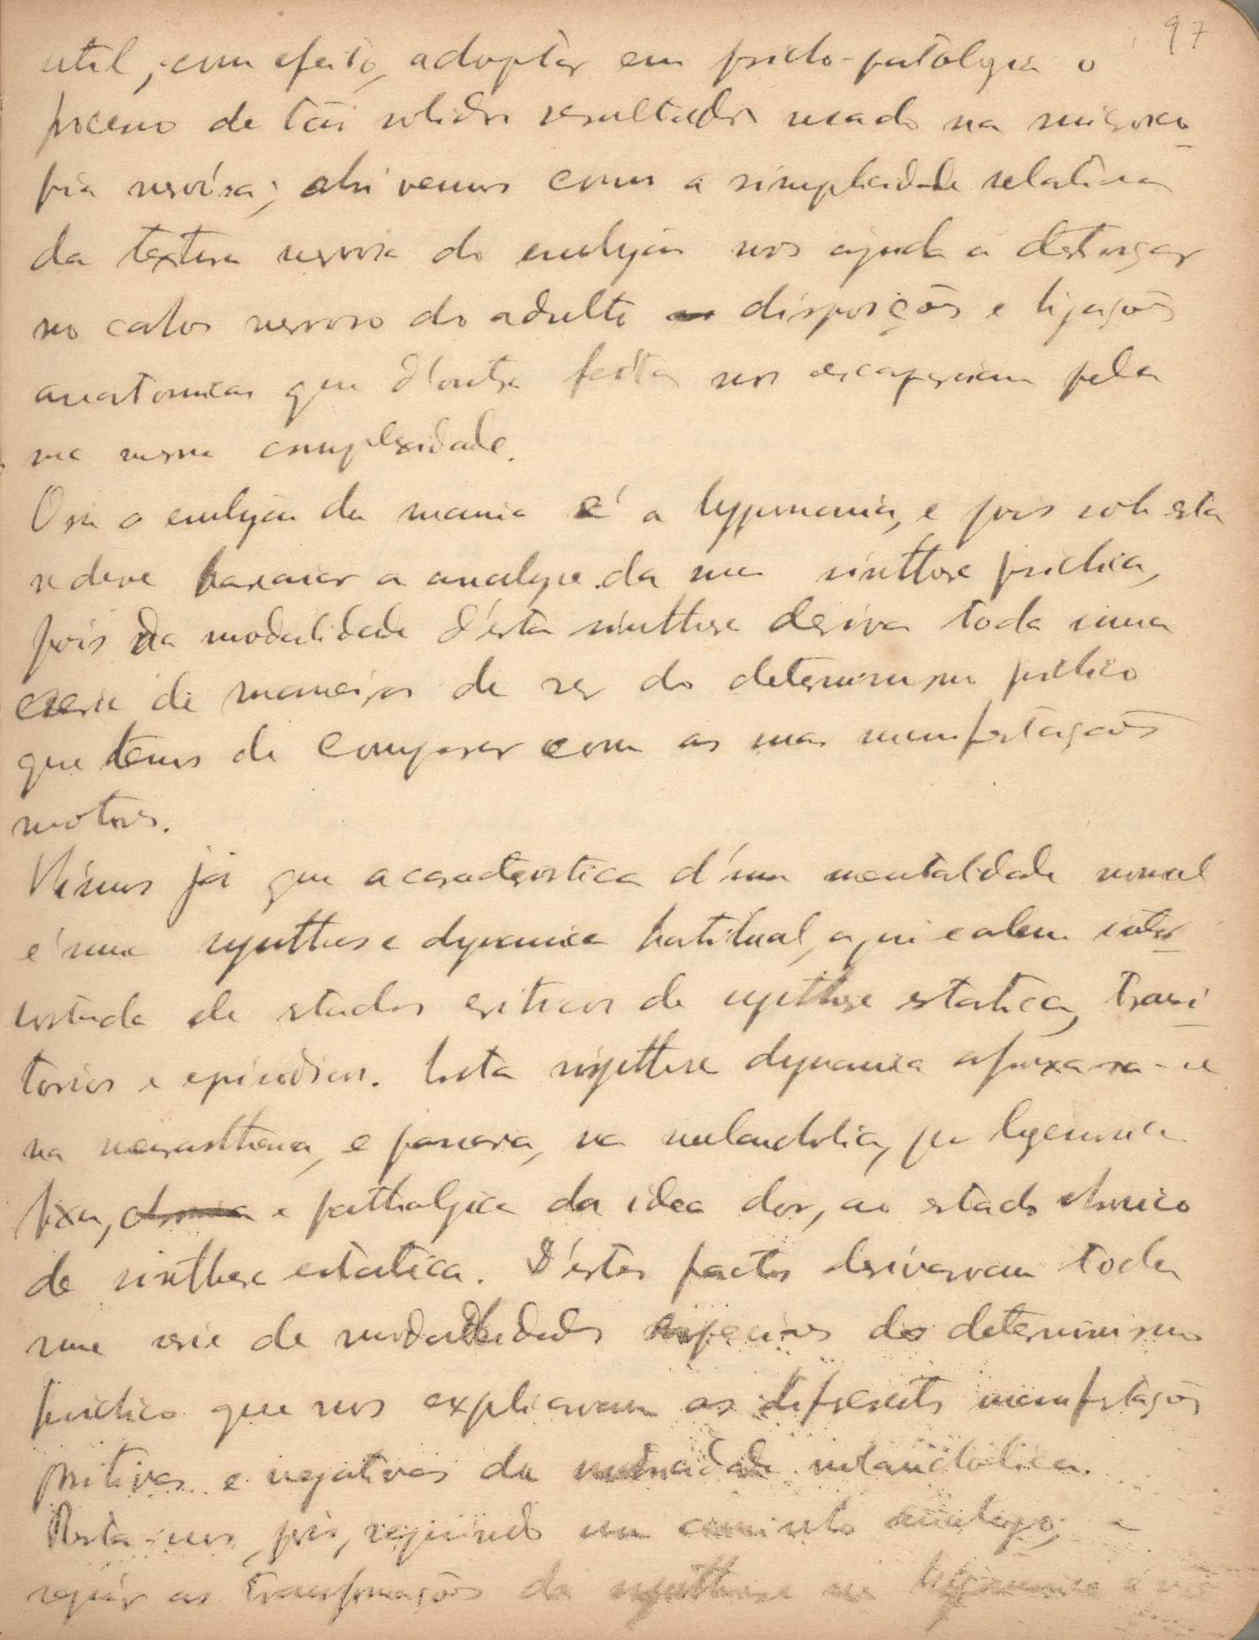 97
util, com efeito, adoptar em psicho-patologia o
processo de tão solidos resultados usado na miosco-
pia nervosa; ahi vemos como a simplicidade relativa
da textura nervosa do embryão nos ajuda a destrinçar
no cahos nervoso do adulto disposições e ligações
anatomicas que d'outra feita nos escapariam pela
sua mesma complexidade.
Ora o embryão da mania é a hypomania, e pois sob esta
se deve basear a analyse da sua sinthese psichica,
pois da modalidade d'esta sinthese deriva toda uma
serie de maneiras de ser do determinismo psichico
que temos de comparar com as suas manifestações
motoras.
Vimos já que a caracteristica d'uma mentalidade normal
é uma synthese dynamica habitual, aqui e alem inter-
cortada de stados criticos de synthese estatica, transi-
torios e episodicos. Esta synthese dynamica afrouxava-se
na neurasthenia, e passava, na melancholia, por hegemonia
fixa, e pathologica da idea dor, ao estado chronico
de sinthese estatica. D'estes factos derivavam toda
uma serie de modalidades especiaes do determinismo
psichico que nos explicavam as diferentes manifestações
positivas e negativas da melancholica.
Resta-nos, pois, seguindo um caminho analogo, a
seguir as transformações da synthese na